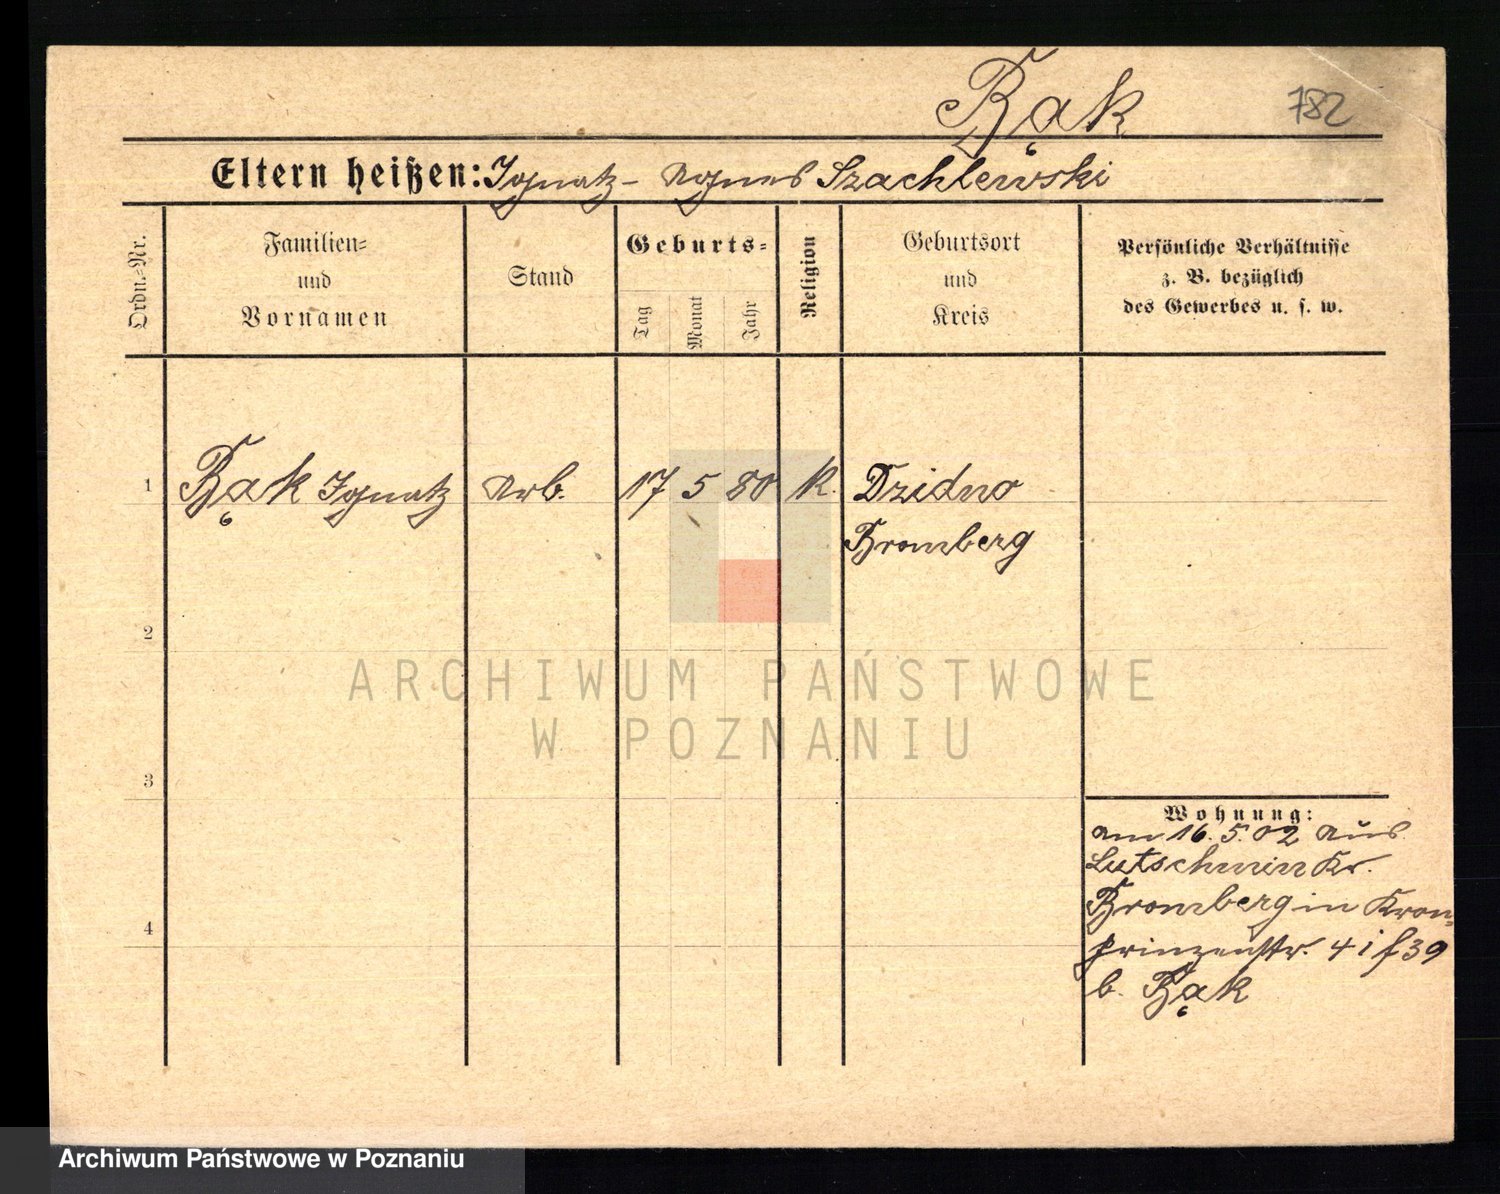 Bąk
782
Eltern heißen: Ignatz - Agnes Szachlewski
Ordn.=Nr.
Familien=
und
Vornamen
Stand
Geburts=
Tag
Monat
Jahr
Religion
Geburtsort
und
Kreis
Persönliche Verhältnisse
z. B. bezüglich
des Gewerbes u. s. w.
1 Bąk Ignatz Arb. 17 5 80 K. Dzidno
Bromberg
2
3
4
Wohnung:
am 16.5.02 aus
Lutschmin Kr.
Bromberg in Kron=
prinzenstr. 4 i f 39
b. Bąk
ARCHIWUM PAŃSTWOWE
W POZNANIU
Archiwum Państwowe w Poznaniu